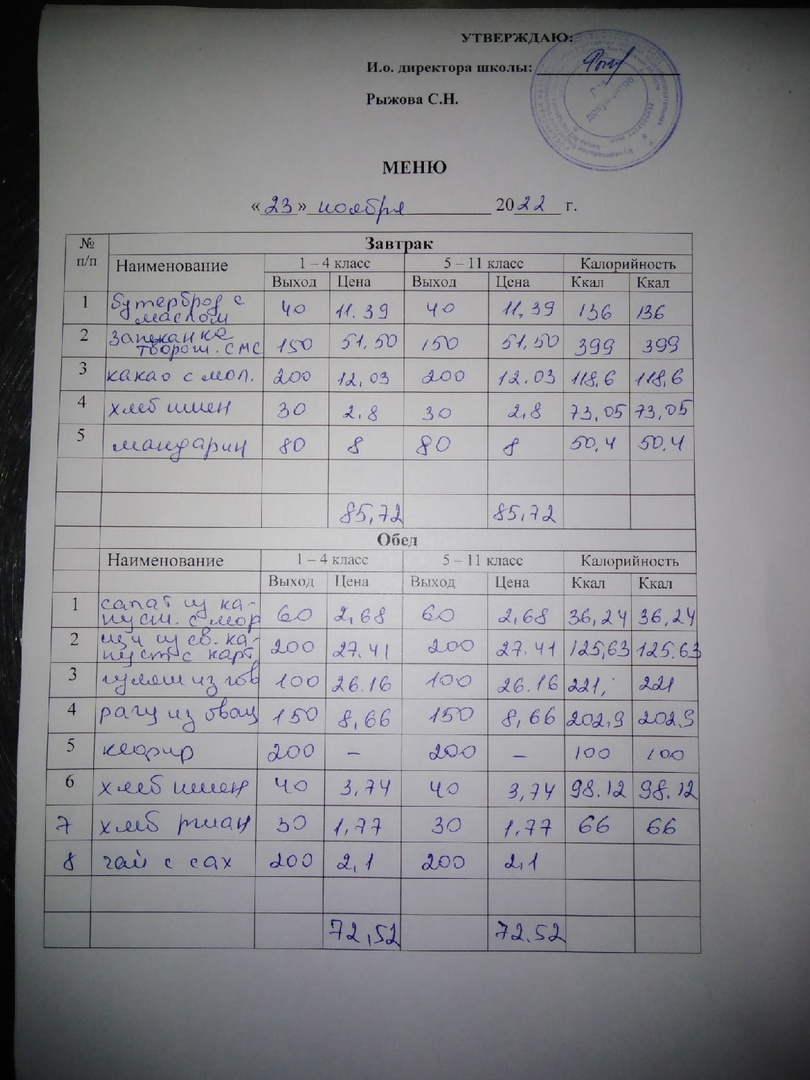 УТВЕРЖДАЮ:
И.о. директора школы:
Рыжова С.Н.
Для документов
МЕНЮ
«23» ноября 2022 г.
№ п/п Завтрак
Наименование 1 – 4 класс 5 – 11 класс Калорийность
Выход Цена Выход Цена Ккал Ккал
1 бутерброд с маслом 40 11.39 40 11,39 136 136
2 запеканка творож. с мс 150 51,50 150 51,50 399 399
3 какао с мол. 200 12,03 200 12.03 118,6 118,6
4 хлеб пшен 30 2,8 30 2,8 73,05 73,05
5 мандарин 80 8 80 8 50,4 50.4
85,72 85,72
Обед
Наименование 1 – 4 класс 5 – 11 класс Калорийность
Выход Цена Выход Цена Ккал Ккал
1 салат из капуст. с мор 60 2,68 60 2,68 36,24 36,24
2 щи из св. капуст с карт 200 27.41 200 27.41 125,63 125.63
3 гуляш из гов 100 26.16 100 26.16 221, 221
4 рагу из овощ 150 8,66 150 8,66 202,9 202,9
5 кефир 200 – 200 – 100 100
6 хлеб пшен 40 3,74 40 3,74 98.12 98.12
7 хлеб ржан 30 1,77 30 1,77 66 66
8 чай с сах 200 2,1 200 2,1
72,52 72.52